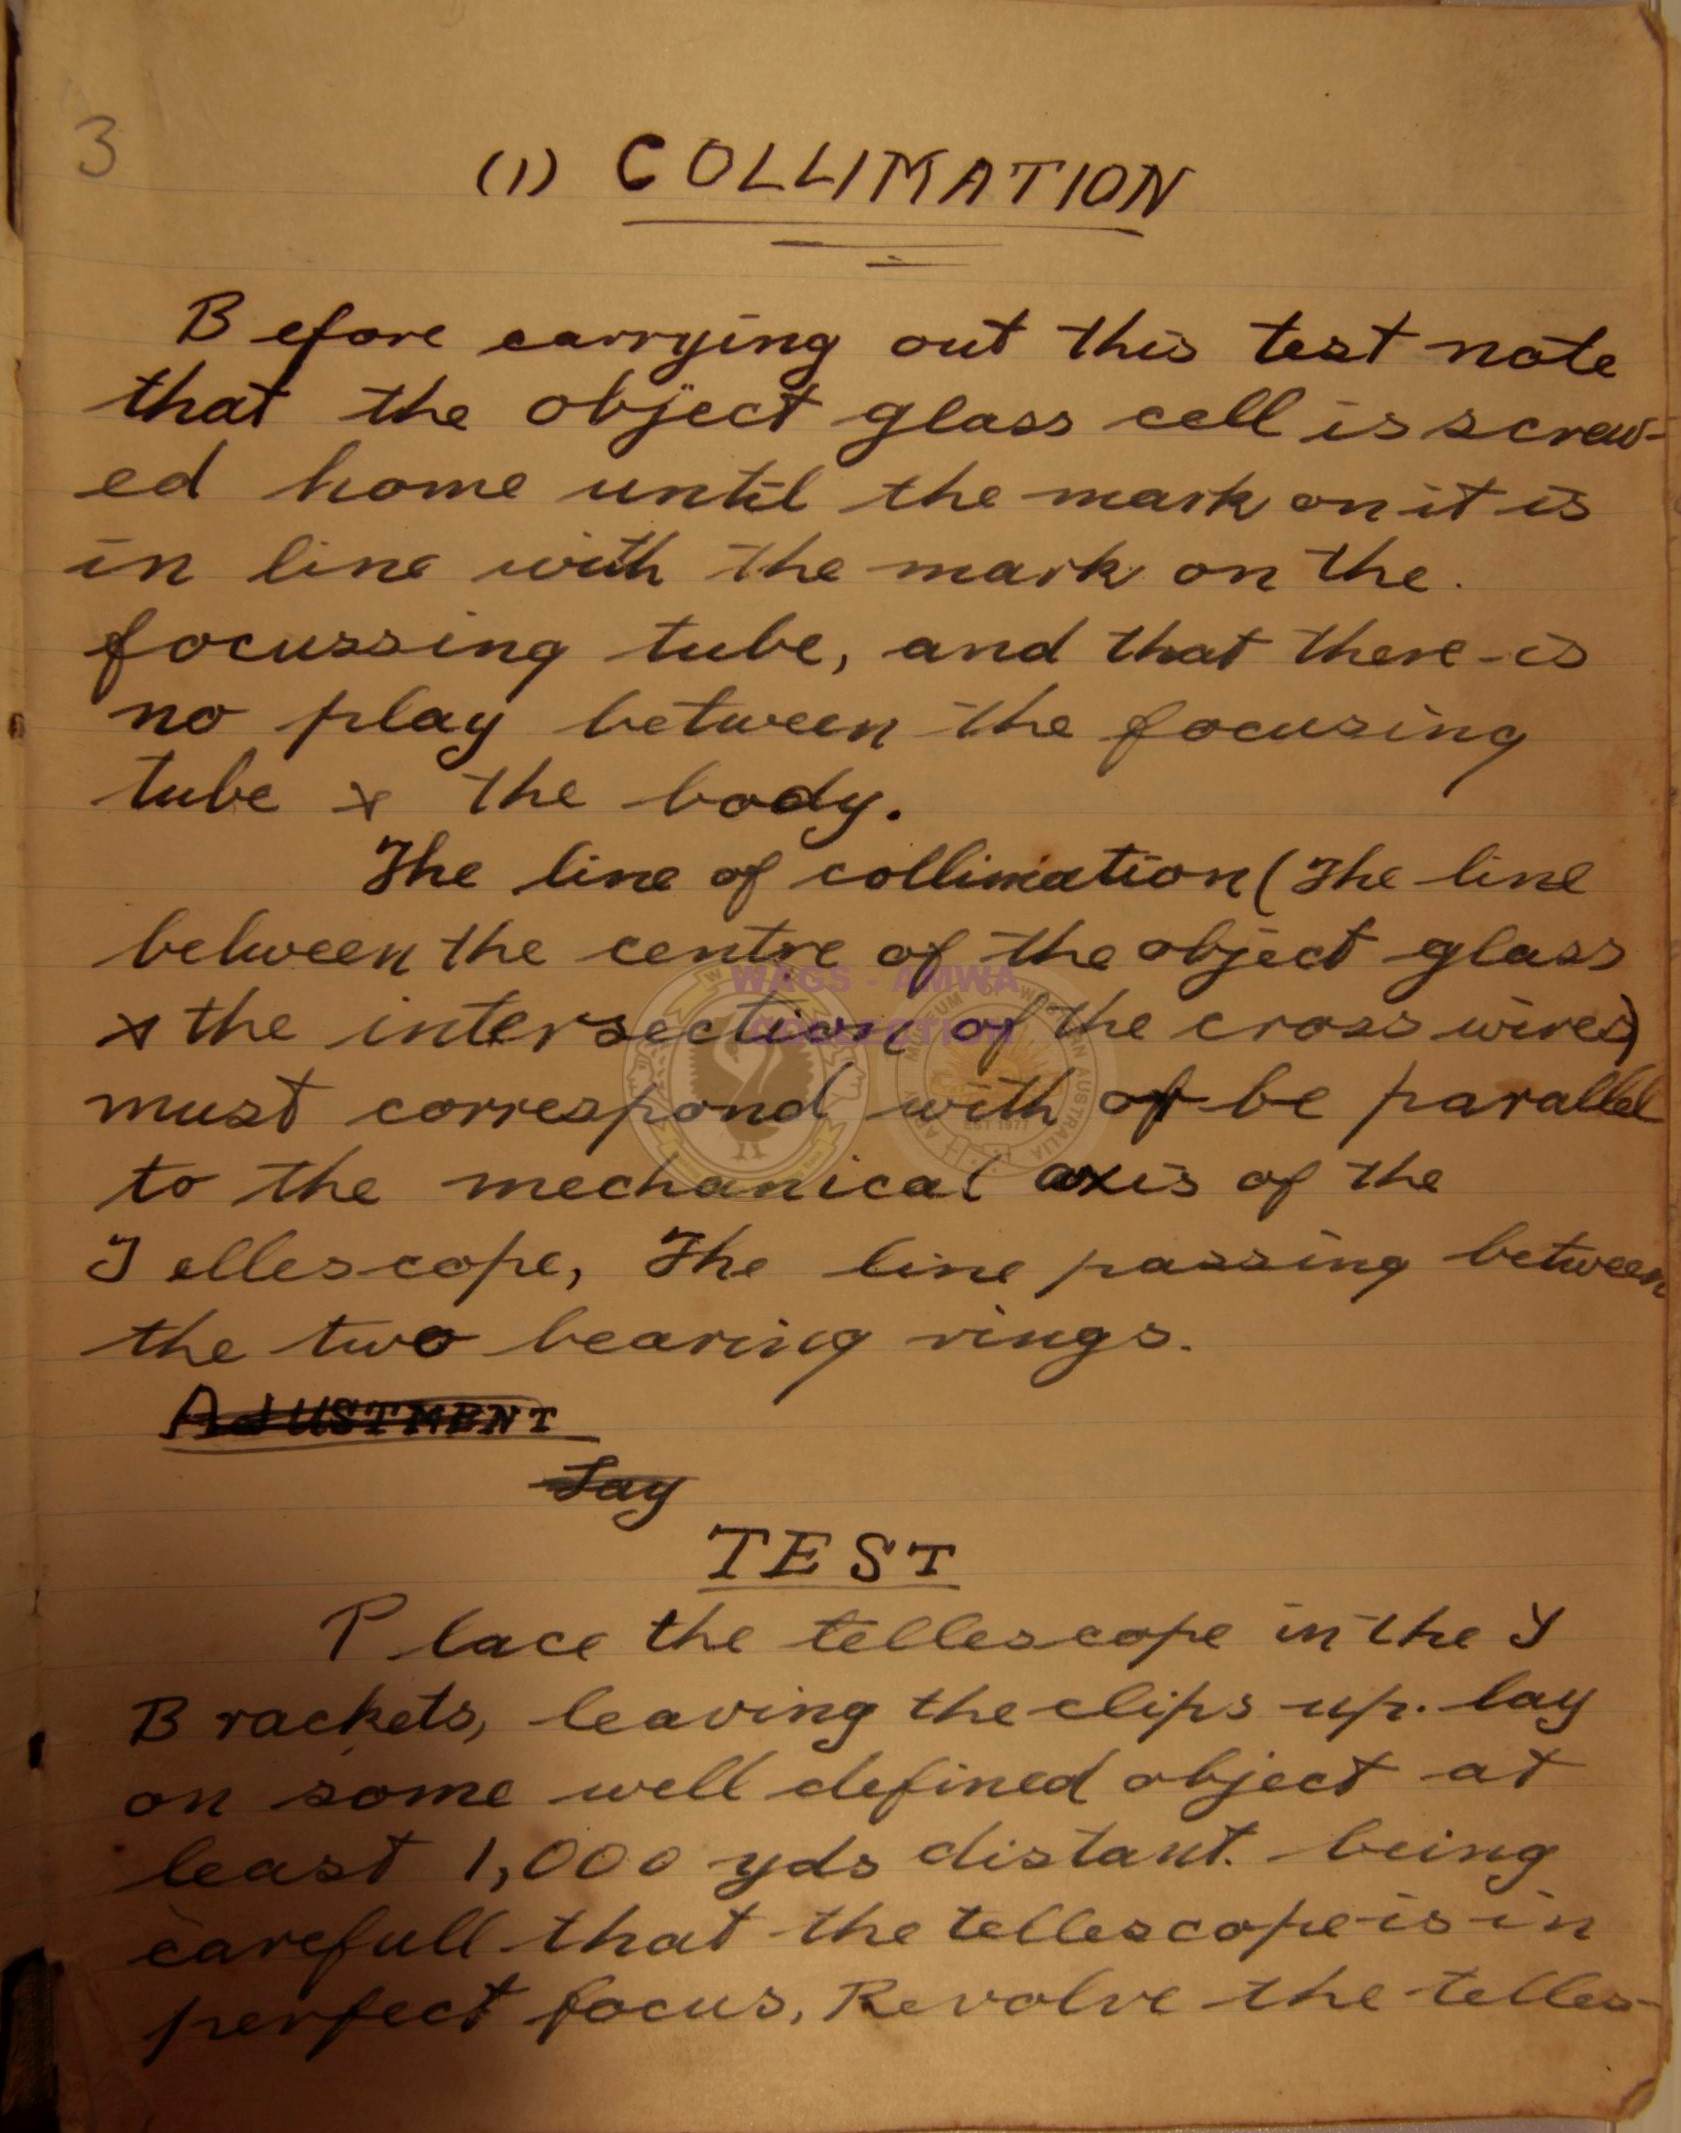 3
(1) COLLIMATION
Before carrying out this test note
that the object glass cell is screw-
ed home until the mark on it is
in line with the mark on the.
focussing tube, and that there is
no play between the focusing
tube & the body.
The line of collimation (The line
between the centre of the object glass
& the intersection of the cross wires)
must correspond with or be parallel
to the mechanical axis of the
Tellescope, The line passing between
the two bearing rings.
ADJUSTMENT
Lay
TEST
Place the tellescope in the Y
Brackets, leaving the clips up. lay
on some well defined object at
least 1,000 yds distant. being
carefull that the tellescope is in
perfect focus, Revolve the telles-
WAGS - AMWA
COLLECTION
ARMY MUSEUM OF WESTERN AUSTRALIA
EST 1977